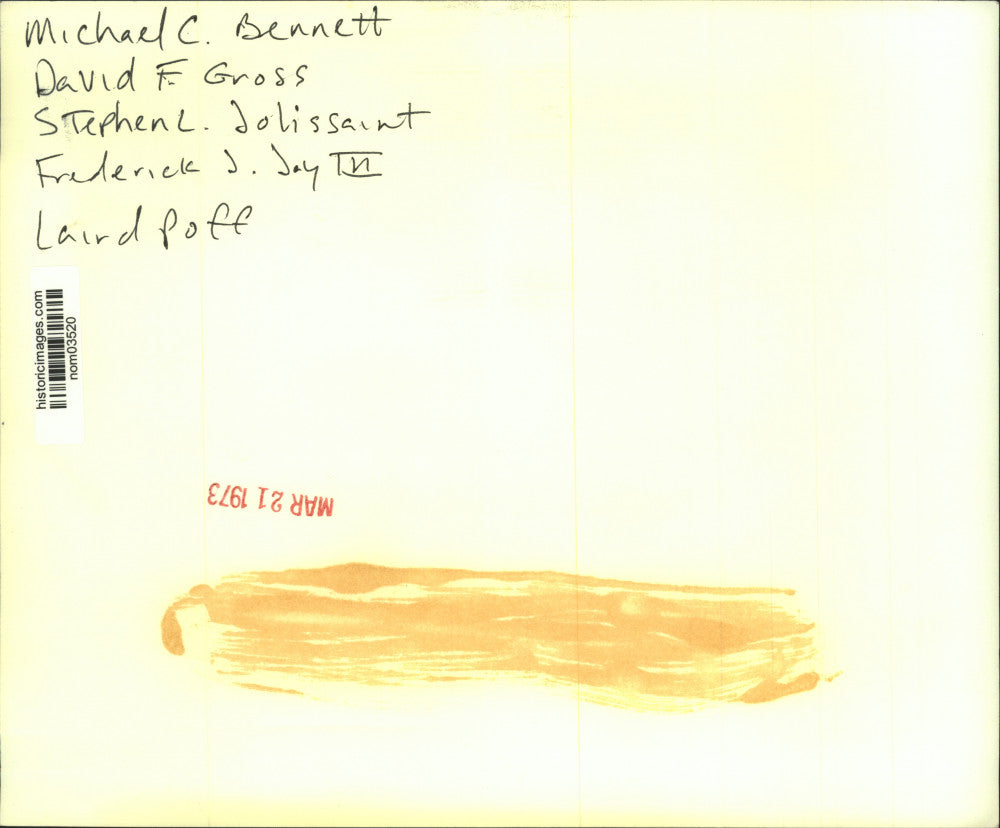 Michael C. Bennett
David F. Gross
Stephen L. Jolissaint
Frederick J. Joy III
Laird Poff
historicimages.com
nom03520
MAR 21 1973